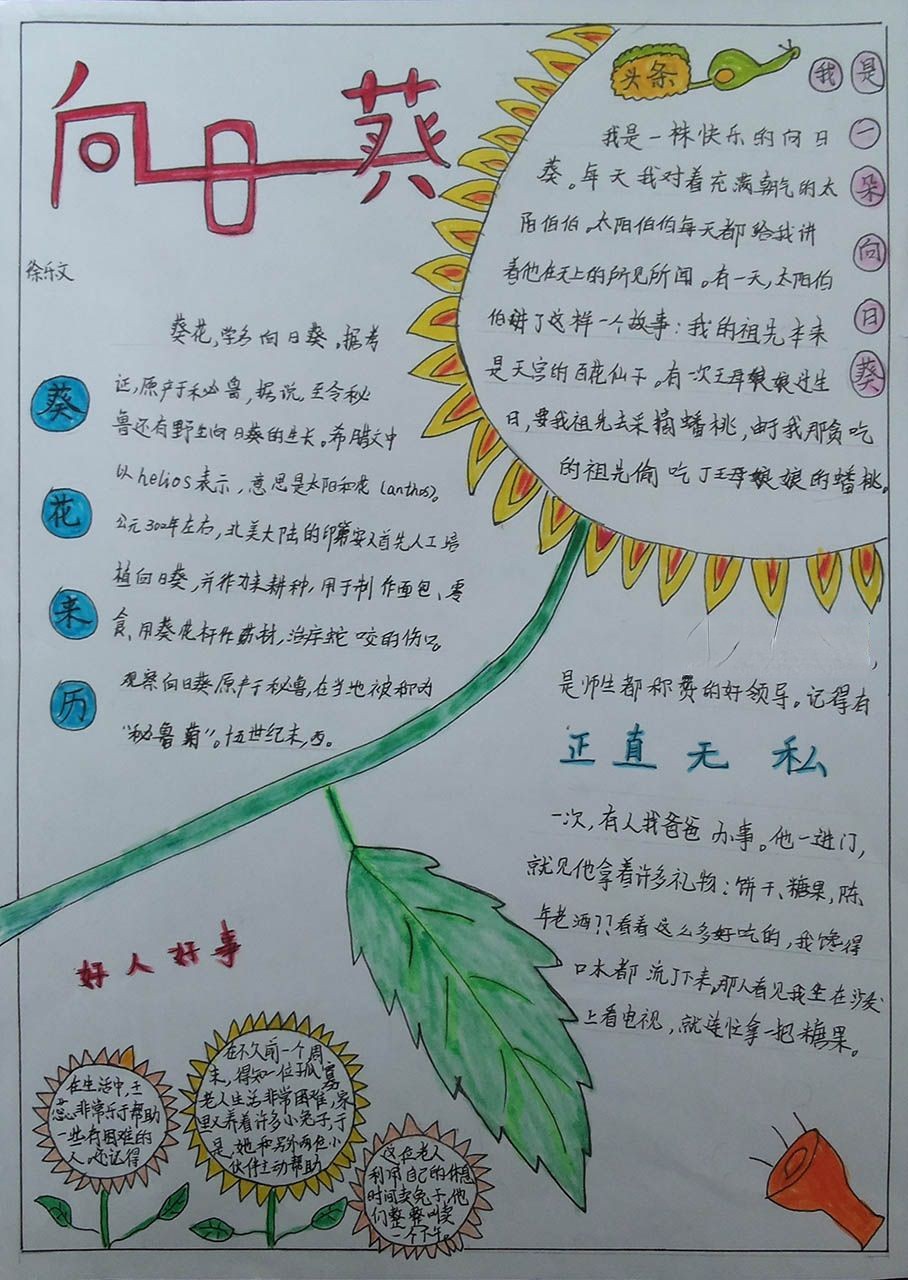 向日葵
徐乐文
葵花来历
葵花,学名向日葵。据考
证,原产于秘鲁,据说,至今秘
鲁还有野生向日葵的生长。希腊文中
以helios表示,意思是太阳和花(anthos)。
公元300年左右,北美大陆的印第安人首先人工培
植向日葵,并作为来耕种,用于制作面包、零
食、用葵花杆作药材,治疗蛇咬的伤口。
观察向日葵原产于秘鲁,在当地被称为
“秘鲁菊”。十五世纪末,西。
头条
我是一朵向日葵
我是一株快乐的向日
葵。每天我对着充满朝气的太
阳伯伯。太阳伯伯每天都给我讲
着他在天上的所见所闻。有一天,太阳伯
伯讲了这样一个故事:我的祖先本来
是天宫的百花仙子。有一次王母娘娘过生
日,要我祖先去采摘蟠桃,由于我那贪吃
的祖先偷吃了王母娘娘的蟠桃。
是师生都称赞的好领导。记得有
正直无私
一次,有人找爸爸办事。他一进门,
就见他拿着许多礼物:饼干、糖果,陈
年老酒??看着这么多好吃的,我馋得
口水都流了下来,那人看见我坐在沙发
上看电视,就连忙拿一把糖果。
好人好事
在生活中,王
蕊非常乐于帮助
一些有困难的
人。还记得
在不久前一个周
末,得知一位孤寡
老人生活非常困难,家
里又养着许多小兔子,于
是,她和另外两位小
伙伴主动帮助
这位老人
利用自己的休息
时间卖兔子,他
们整整叫卖
一个下午。